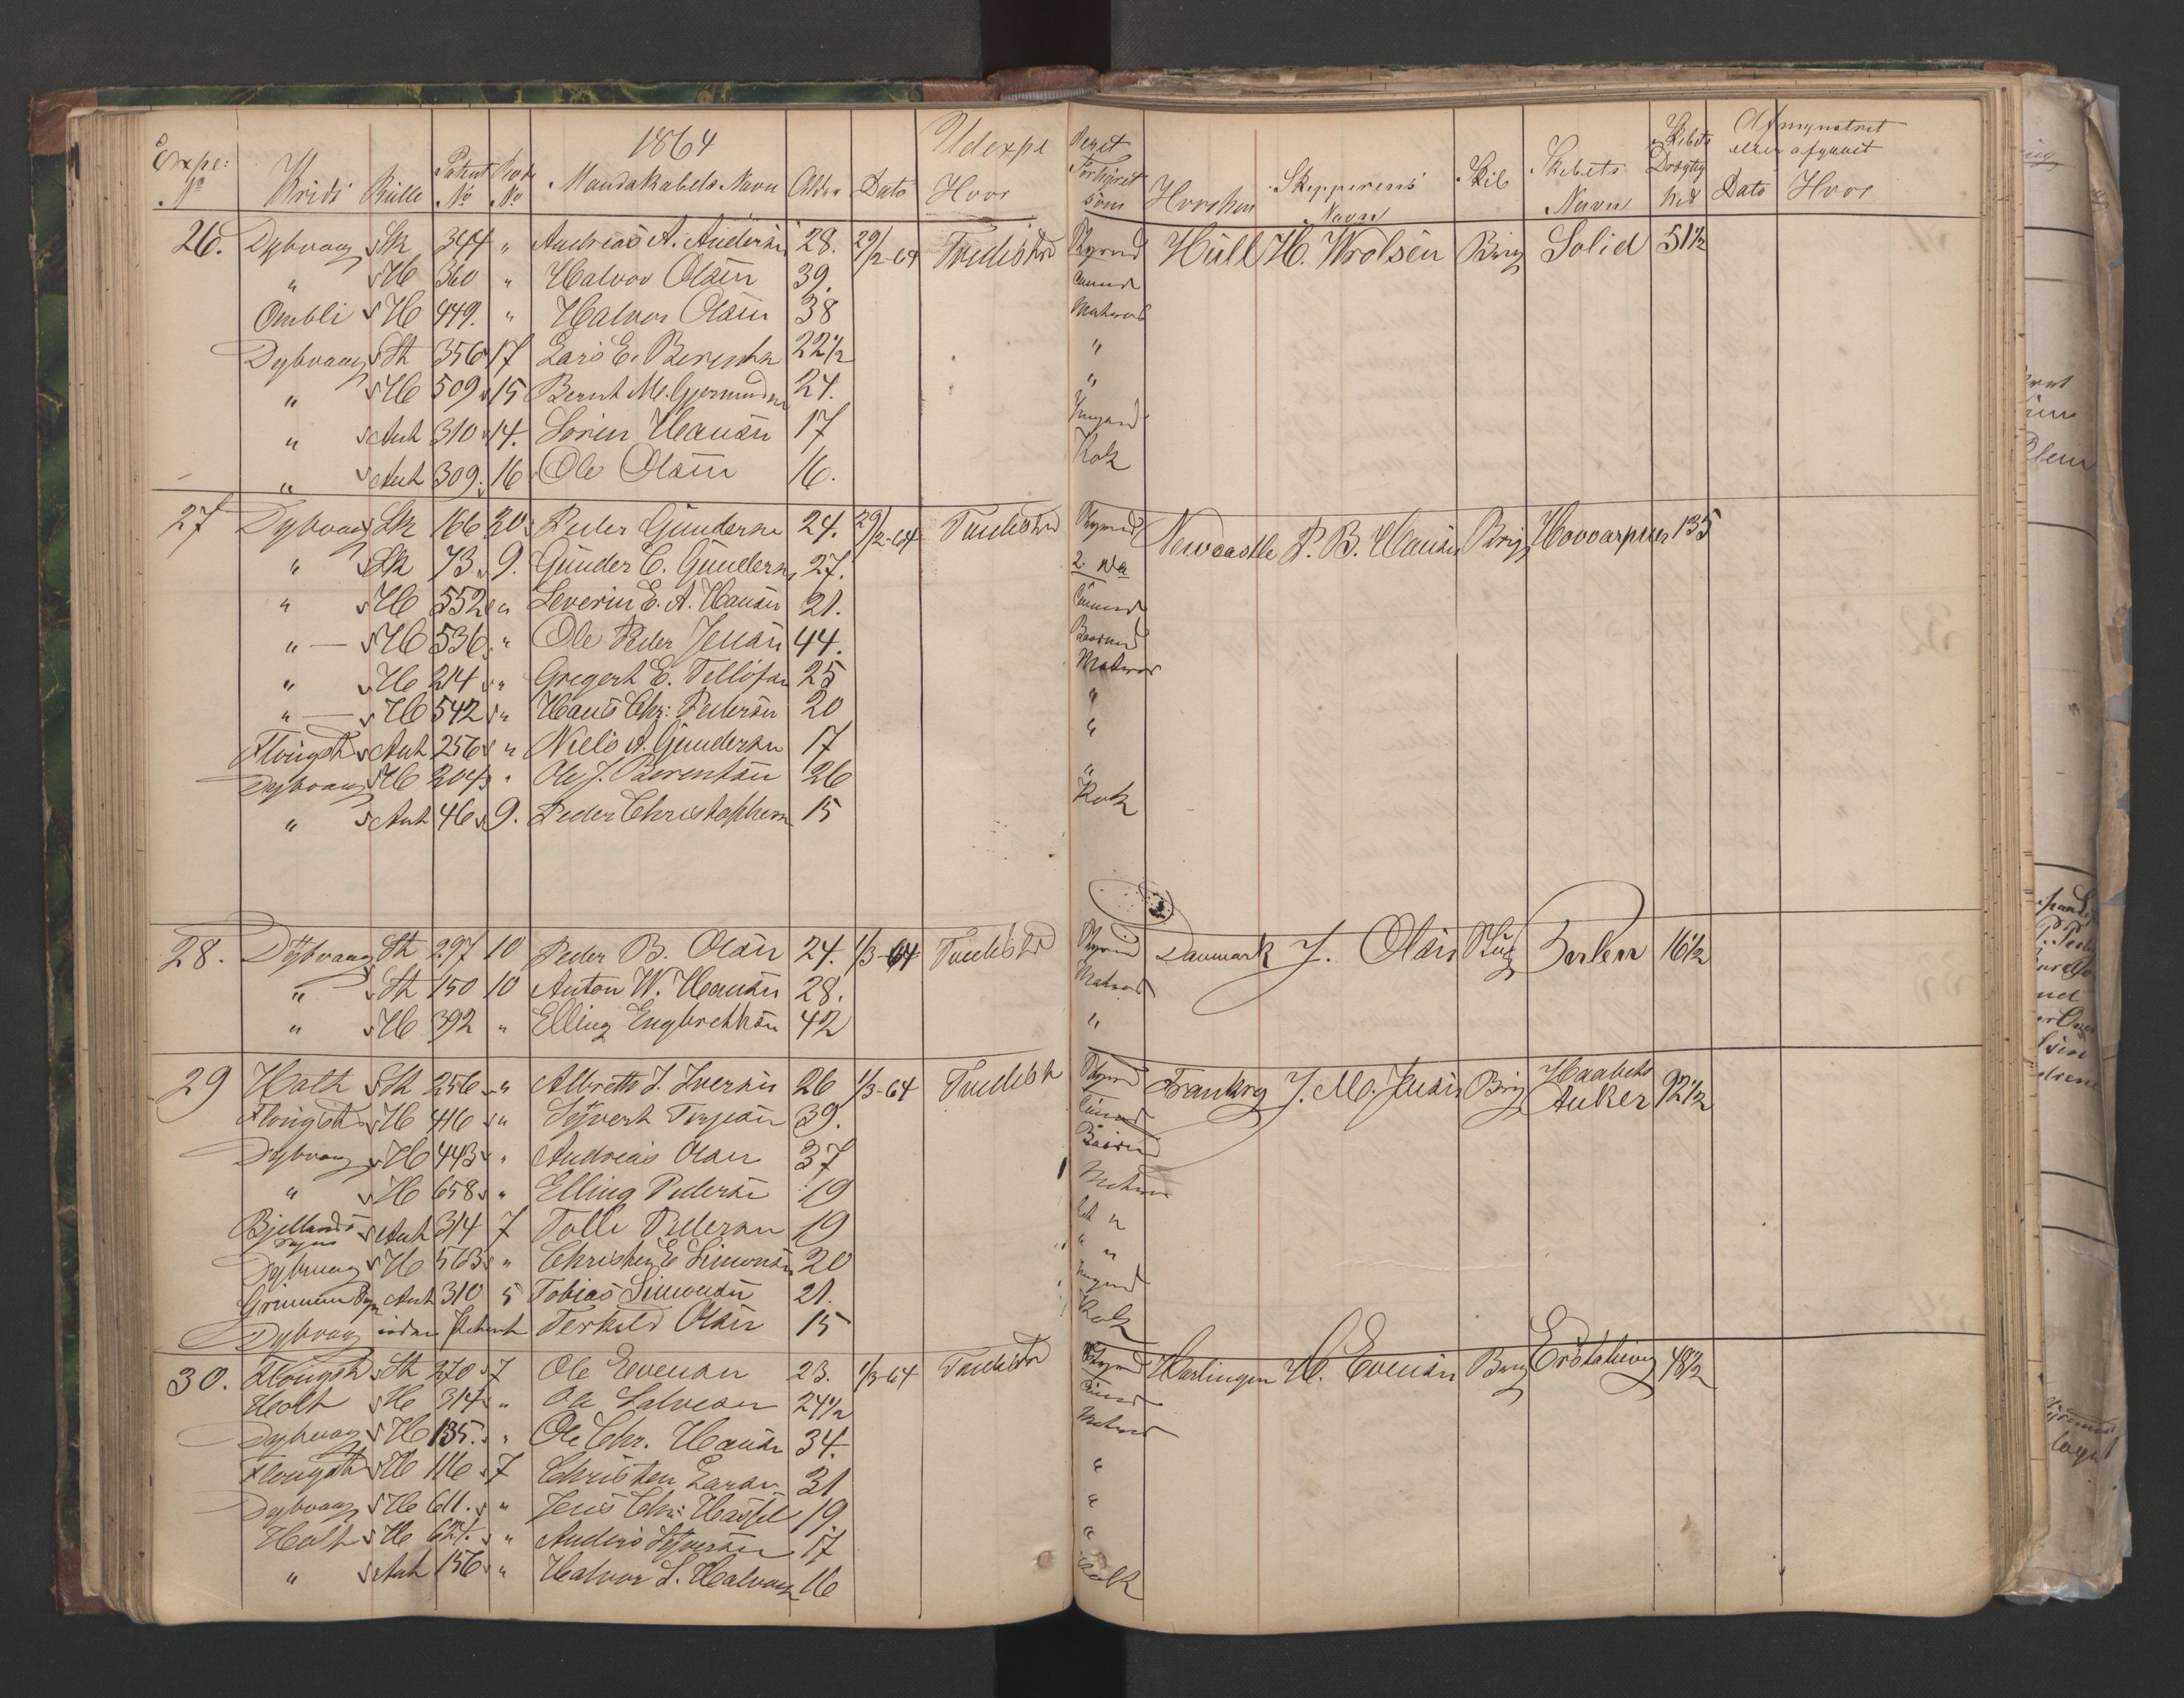 1864
Expe: No Kreds Rulle Patent No Rode No Mandskabets Navn Alder Dato Udexpe Hvor Veret Forhyret som Hvorhen Skipperens Navn Skib Skibets Navn Skibets Drægtighed Afmynstret eller afgaaet Dato Hvor
26. Dybvaag Sk 344 " Andreas A. Anderssen 28. 29/2-64 Tvedestrd Styrmd Hull H. Wrolsen Brig Solid 51½
" H 360 " Halvor Olsen 39.
Ombli H 449. " Halvor Olsen 38 Matros
Dybvaag St 356 17 Lars E. 22½ "
" H 509 15 Bernt M. Gjermundsen 24. "
" Auk 310 14. Sörin Hansen 17
" Auk 309. 16 Ole Olsen 16. Kok
27 Dybvaag Sk 166 20 Peder Gundersen 24. 29/2-64 Tvedestrd Styrmd Newcastle P. B. Hansen Brig 135
" Sk 73 9. Gunder C. Gundersen 27. 2. do
" H 552 " Severin E. A. Hansen 21.
" — H 536 " Ole Peder Jensen 44. Baasmd
" H 214 " Gregert E. Tellefsen 25 Matros
" — H 542 " Hans Chr: Pedersen 20 "
Flougst Auk 256 " Niels A. Gundersen 17 "
Dybvaag H 204 " Ole J. Berentsen 26 "
" Auk 46 9. Peder Christophersen 15 Kok
28. Dybvaag St 297 10 Peder B. Olsen 24. 1/3-64 Tvedestrd Styrmd Danmark J. Olsen 16½
" St 150 10 Anton W. Hansen 28. Matros
" H 392 " Elling Engbrethsen 42 "
29 Holt Sk 256 " Albreth J. Iversen 26 1/3-64 Tvedestr Styrmd Frankrg J. M. Jensen Brig Haabets Anker 92½
Flougst H 416 " Syvert Terjesen 39.
Dybvaag H 443 " Andreas Olsen 37
" H 658 " Elling Pedersen 19 Matros
Bjellands Sogn Auk 314 7 Tolle Pedersen 19
Dybvaag H 563 " Christen E Simonsen 20 " "
Auk 310 5 Tobias Simonsen 21.
Dybvaag uden Patent Terkild Olsen 15 Kok
30. Flougst St 270 7 Ole Evensen 23. 1/3-64 Tvedestrd Styrmd Harlingen H. Evensen Brig 48½
Holt H 314 " Ole Salvesen 24½
Dybvaag H 135. " Ole Chr. Hansen 34. Matros
Flougst H 116 7 Christen Larsen 31 "
Dybvaag H 611. " Jens Chr: Hassel 19. "
Holt H 627. " Anders Syversen 17 "
" Auk 156 " Halvor S. Halvorsen 16 Kok